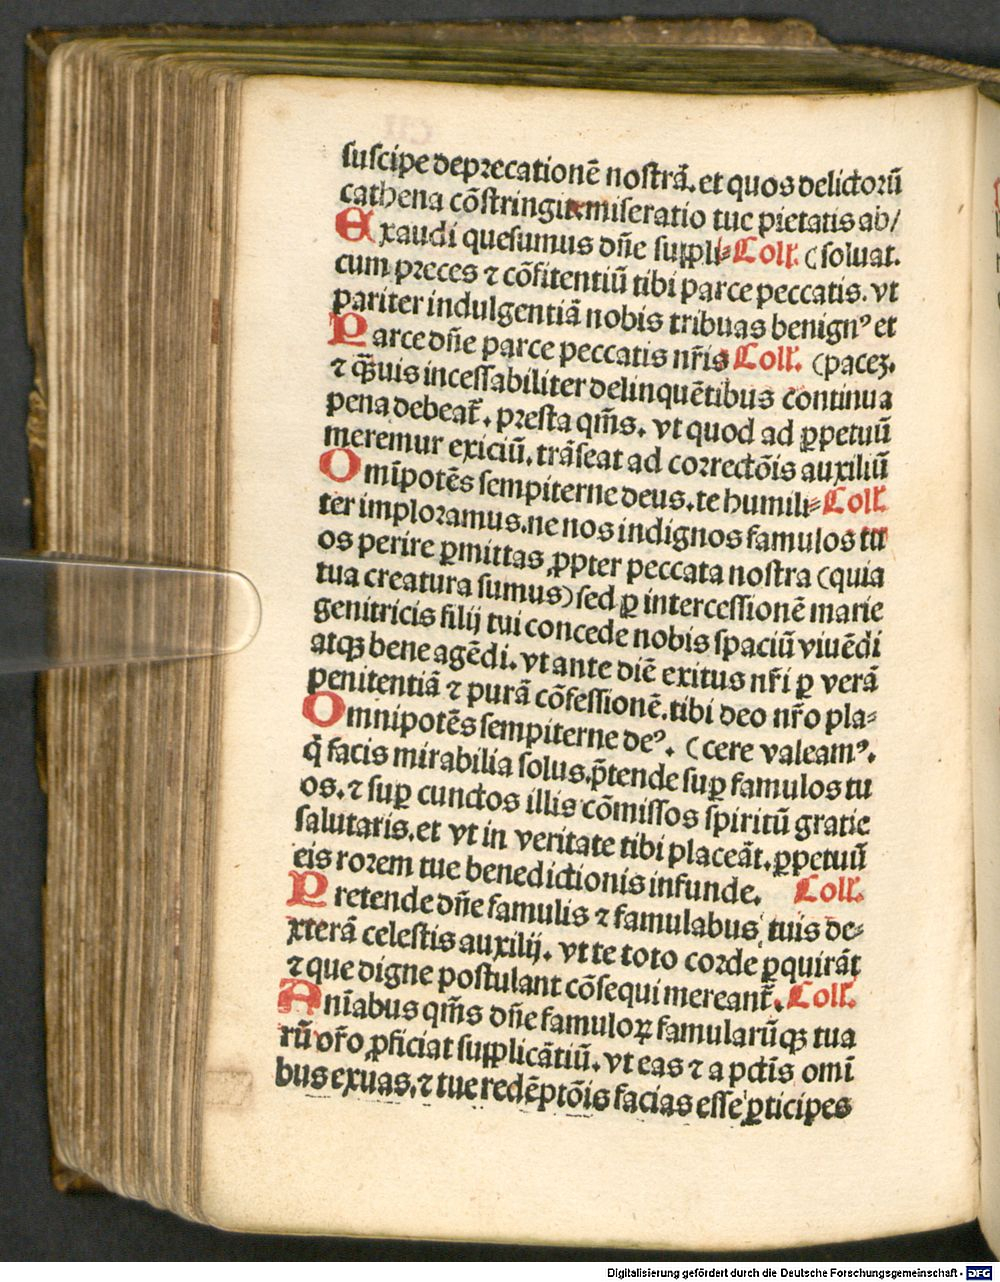 suſcipe deprecationē noſtrā. et quos delictorū
cathena cōſtringit miſeratio tue pietatis ab/
Exaudi queſumus dn̄e ſuppli⸗ Coll'. (ſoluat.
cum preces ⁊ cōfitentiū tibi parce peccatis. vt
pariter indulgentiā nobis tribuas benignꝰ et
Parce dn̄e parce peccatis nr̄is Coll'. (paceꝫ.
⁊ qꝫuis inceſſabiliter delinquētibus continua
pena debeat̄. preſta qm̄s. vt quod ad ꝑpetuū
meremur exiciū. trāſeat ad correctōis auxiliū
Omīpotēs ſempiterne deus. te humili⸗ Coll'
ter imploramus. ne nos indignos famulos tu
os perire ꝑmittas ꝓpter peccata noſtra (quia
tua creatura ſumus) ſed ꝑ interceſſionē marie
genitricis filij tui concede nobis ſpaciū viuēdi
atqꝫ bene agēdi. vt ante diē exitus nr̄i ꝑ verā
penitentiā ⁊ purā cōfeſſionē. tibi deo nr̄o pla⸗
Omnipotēs ſempiterne deꝰ. (cere valeamꝰ.
q̄ facis mirabilia ſolus. p̄tende ſuꝑ famulos tu
os. ⁊ ſuꝑ cunctos illis cōmiſſos ſpiritū gratie
ſalutaris. et vt in veritate tibi placeāt. ꝑpetuū
eis rorem tue benedictionis infunde. Coll'.
Pretende dn̄e famulis ⁊ famulabus tuis de⸗
xterā celeſtis auxilij. vt te toto corde ꝑquirāt
⁊ que digne poſtulant cōſequi mereant̄. Coll'.
Anīabus qm̄s dn̄e famuloꝝ famularūqꝫ tua
rū or̄o ꝓficiat ſupplicātiū. vt eas ⁊ a pctīs omī
bus exuas. ⁊ tue redēptōis facias eſſe ꝑticipes
Digitalisierung gefördert durch die Deutsche Forschungsgemeinschaft - DFG